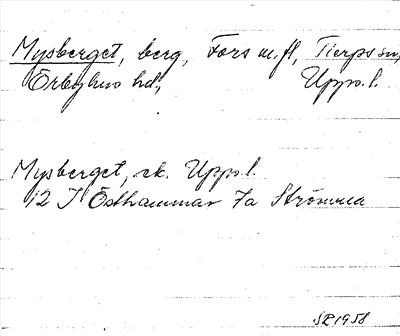 Mysberget, berg, Fors m.fl, Tierps sn,
Örbyhus hd, Upps. l.
Mysberget, ek. Upps. l.
12 I Östhammar 7a Strömma
SR 1958